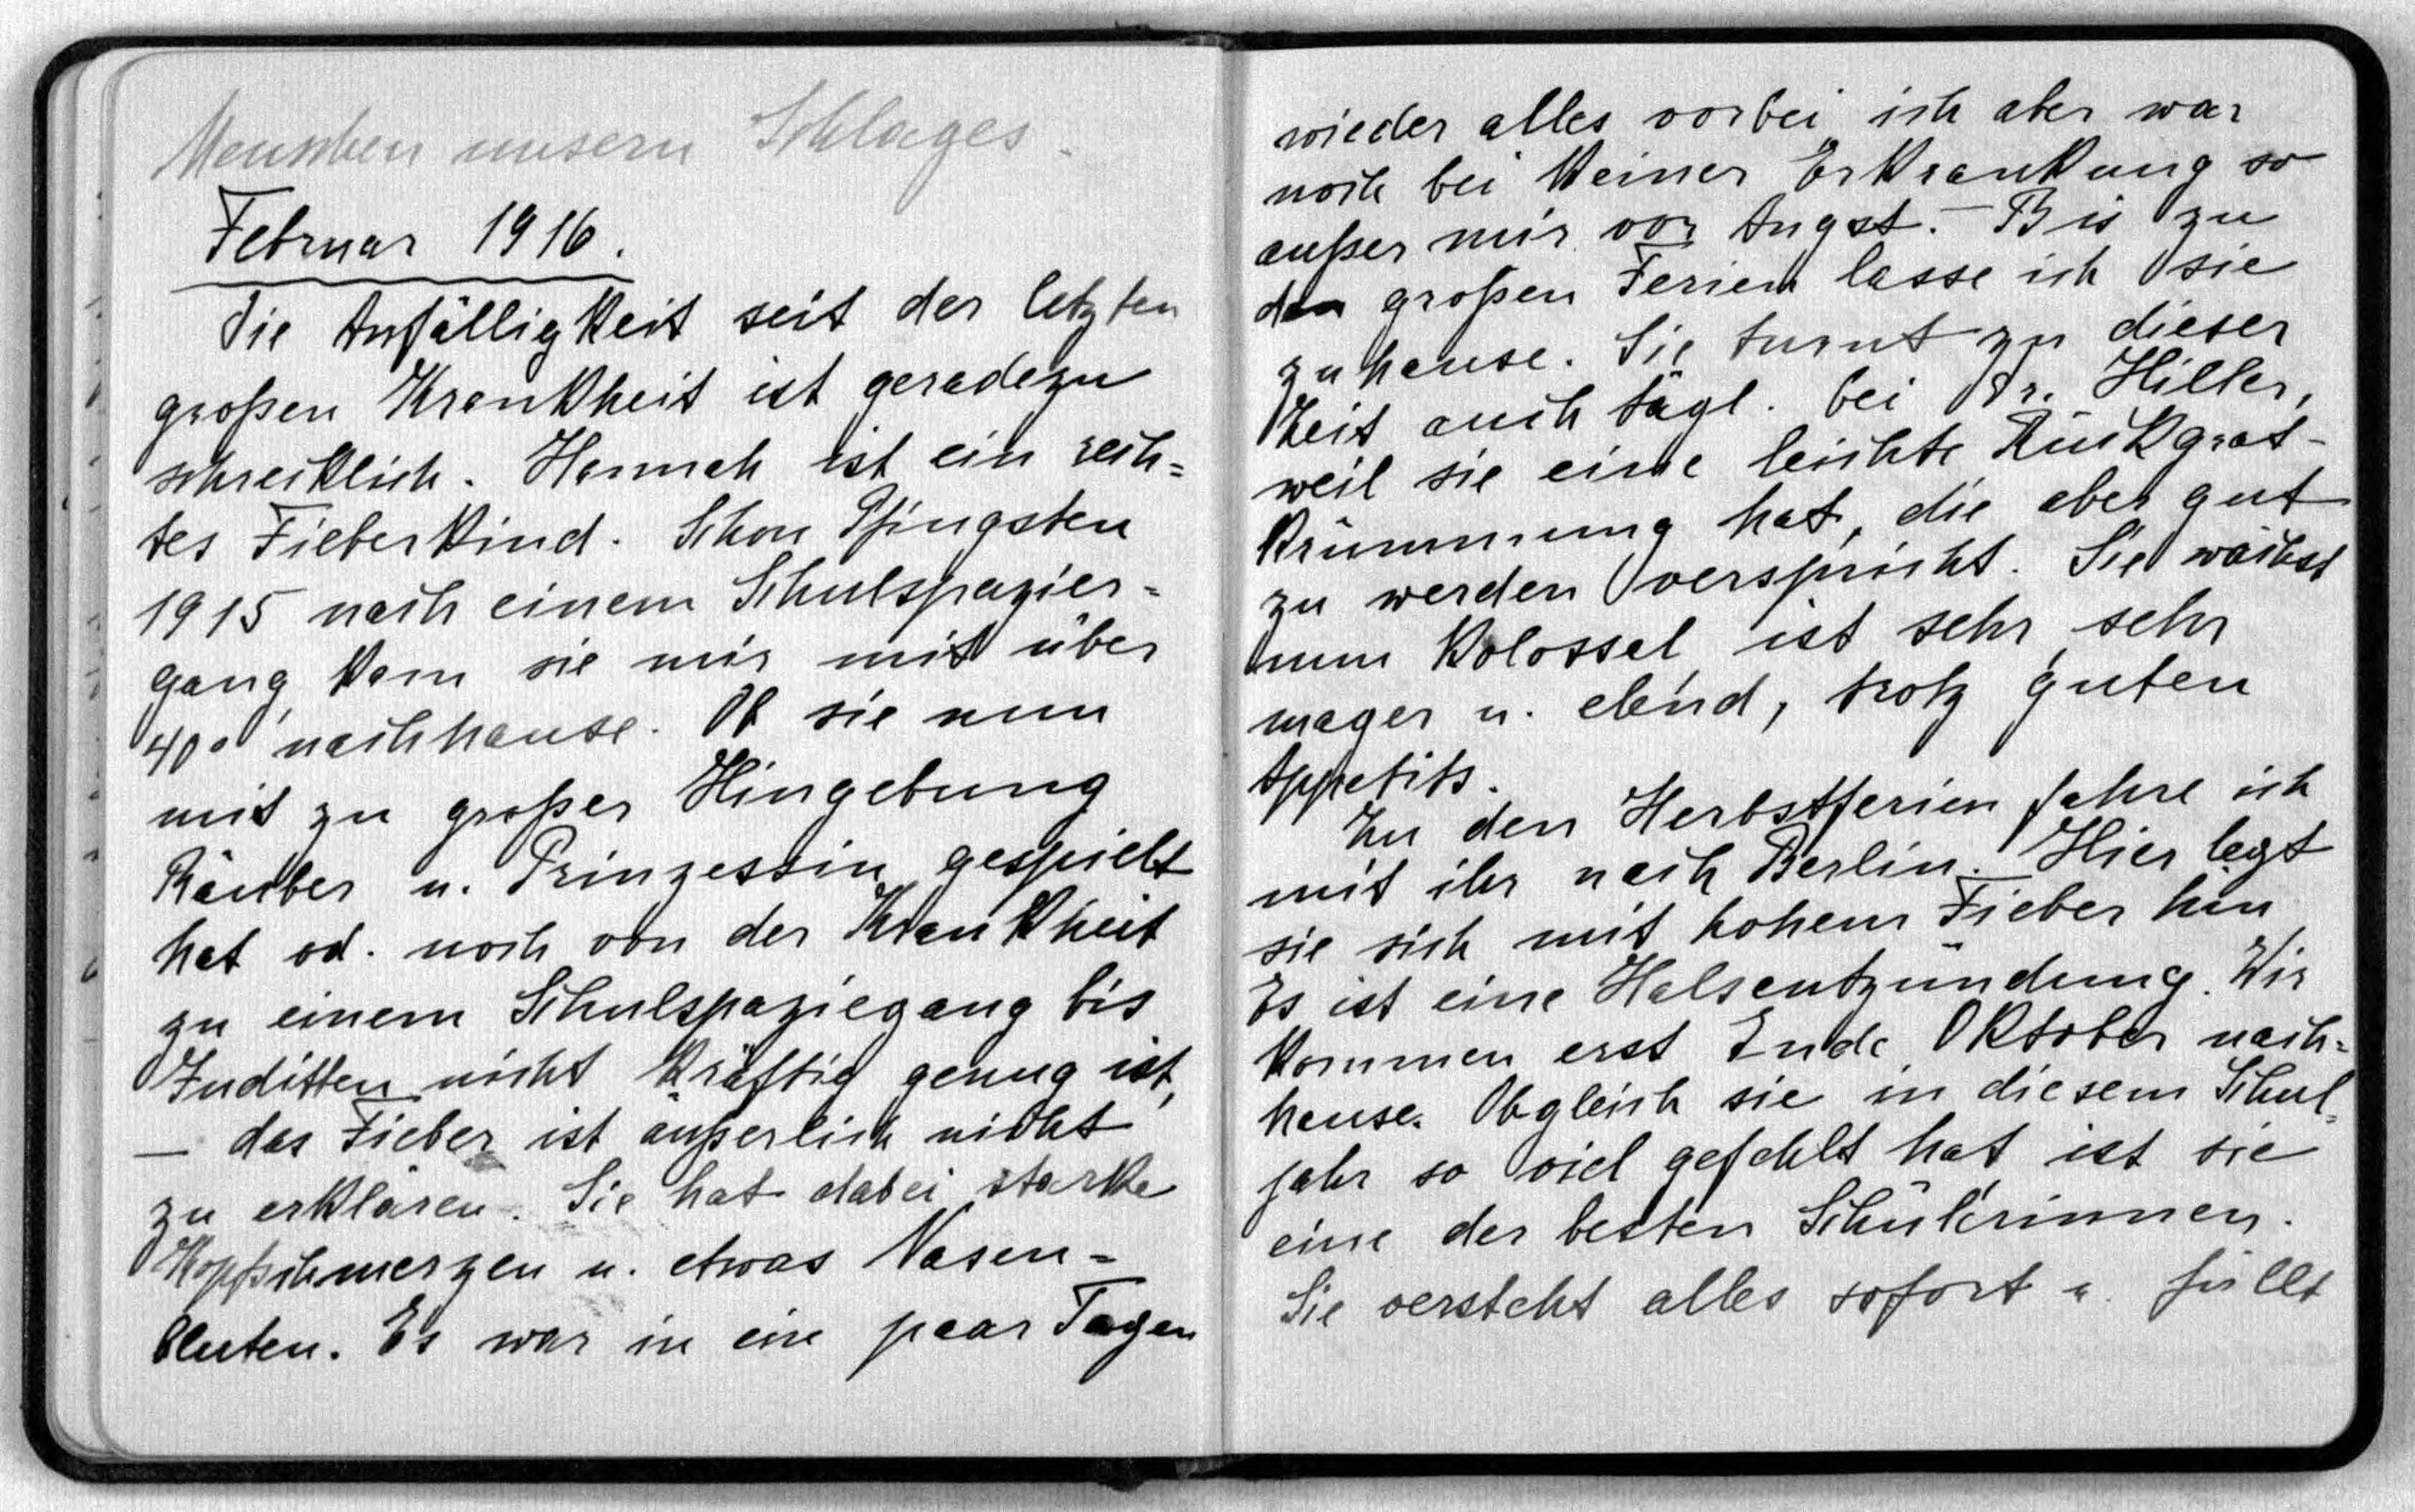 Menschen unsern Schlages.
Februar 1916.
Die Anfälligkeit seit der letzten
großen Krankheit ist geradezu
schrecklich. Hannah ist ein rech=
tes Fieberkind. Schon Pfingsten
1915 nach einem Schulspazier=
gang, kam sie mir mit über
40° nachhause. Ob sie nun
mit zu großer Hingebung
Räuber u. Prinzessin gespielt
hat od. noch von der Krankheit
zu einem Schulspaziegang bis
Juditten nicht kräftig genug ist,
— das Fieber ist äußerlich nicht
zu erklären. Sie hat dabei starke
Kopfschmerzen u. etwas Nasen=
bluten. Es war in ein paar Tagen
wieder alles vorbei, ich aber war
noch bei keiner Erkrankung so
außer mir vor Angst. — Bis zu
den großen Ferien lasse ich sie
zuhause. Sie turnt zu dieser
Zeit auch tägl. bei Dr. Hiller,
weil sie eine leichte Rückgrat-
krümmung hat, die aber gut
zu werden verspricht. Sie wächst
nun kolossal, ist sehr, sehr
mager u. elend, trotz guten
Appetits.
Zu den Herbstferien fahre ich
mit ihr nach Berlin. Hier legt
sie sich mit hohem Fieber hin
Es ist eine Halsentzündung. Wir
kommen erst Ende Oktober nach=
hause. Obgleich sie in diesem Schul=
jahr so viel gefehlt hat ist sie
eine der besten Schülerinnen.
Sie versteht alles sofort u. füllt